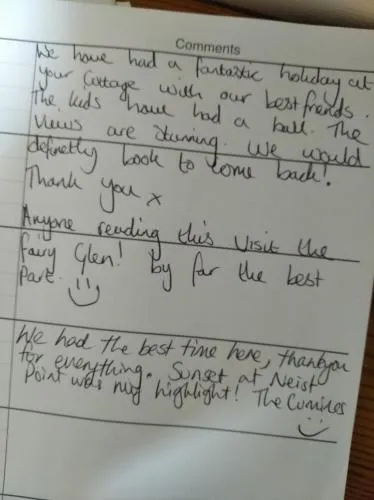 Comments
We have had a fantastic holiday at
your Cottage with our best friends.
The kids have had a ball. The
views are stunning. We would
definetly book to come back!
Thank you x
Anyone reading this visit the
Fairy Glen! by far the best
part.
We had the best time here, thankyou
for everything. Sunset at Neist
Point was my highlight! The